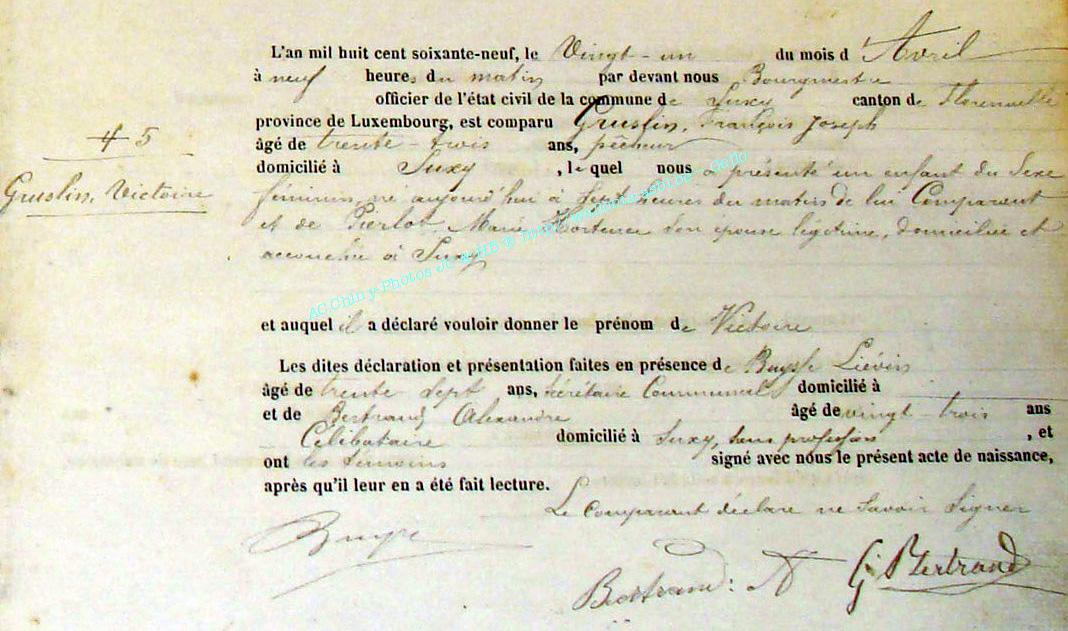 L'an mil huit cent soixante-neuf, le Vingt-un du mois d'Avril
à neuf heures du matin par devant nous Bourgmestre
officier de l'état civil de la commune de Suxy canton de Florenville
province de Luxembourg, est comparu Gruslin, François Joseph
âgé de trente-trois ans, pêcheur
domicilié à Suxy, lequel nous a présenté un enfant du Sexe
féminin, né aujourd'hui à sept heures du matin de lui Comparant
et de Pierlot, Marie Hortense son épouse légitime, domiciliée et
accouchée à Suxy
et auquel il a déclaré vouloir donner le prénom de Victoire
Les dites déclaration et présentation faites en présence de Buysse Liévin
âgé de trente sept ans, secrétaire Communal domicilié à
et de Bertrand Alexandre âgé de vingt-trois ans
Célibataire domicilié à Suxy, sans profession, et
ont les témoins signé avec nous le présent acte de naissance,
après qu'il leur en a été fait lecture.
Le Comparant déclare ne Savoir Signer
Buysse
Bertrand: A
G Bertrand
# 5
Gruslin, Victoire
AC Chiny - Photos JC & HB ©